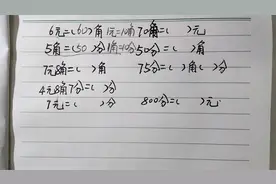 6元=(60)角 1元=10角 70角=( )元
5角=(50)分 1角=10分 50分=( )角
7元8角=( )角 75分=( )角( )分
4元8角7分=( )分
7元=( )分 800分=( )元